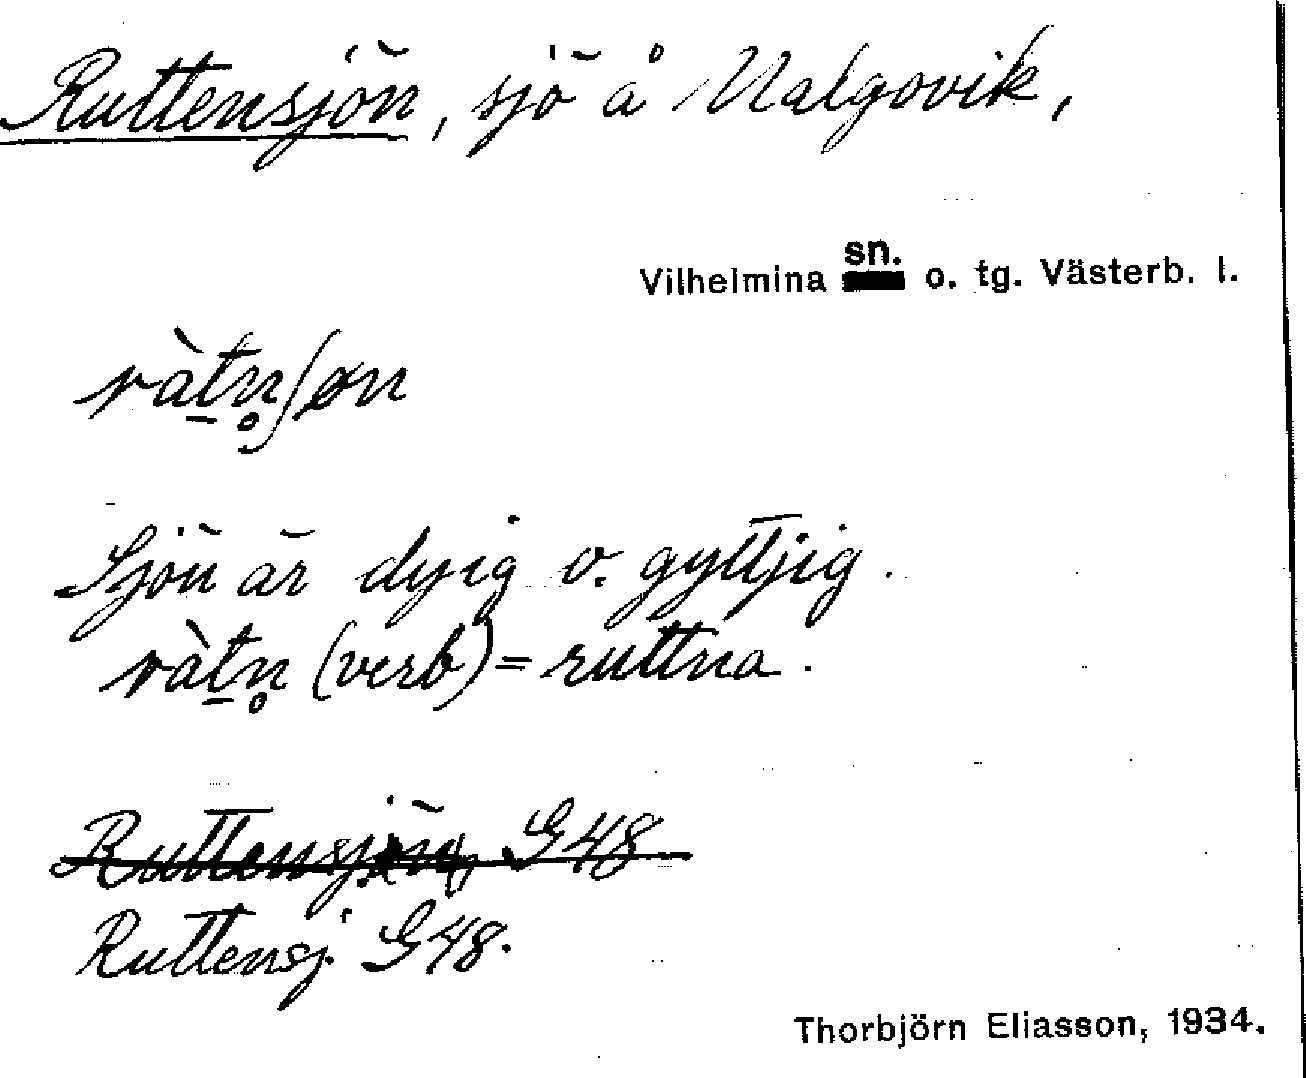 Ruttensjön, sjö å Malgovik,
Vilhelmina sn. o. tg. Västerb. l.
ràt̲n̥ʃøn
Sjön är dyig o. gyttjig.
ràt̲n̥ (verb) = ruttna.
Ruttensjön, G48
Ruttensj. G48.
Thorbjörn Eliasson, 1934.